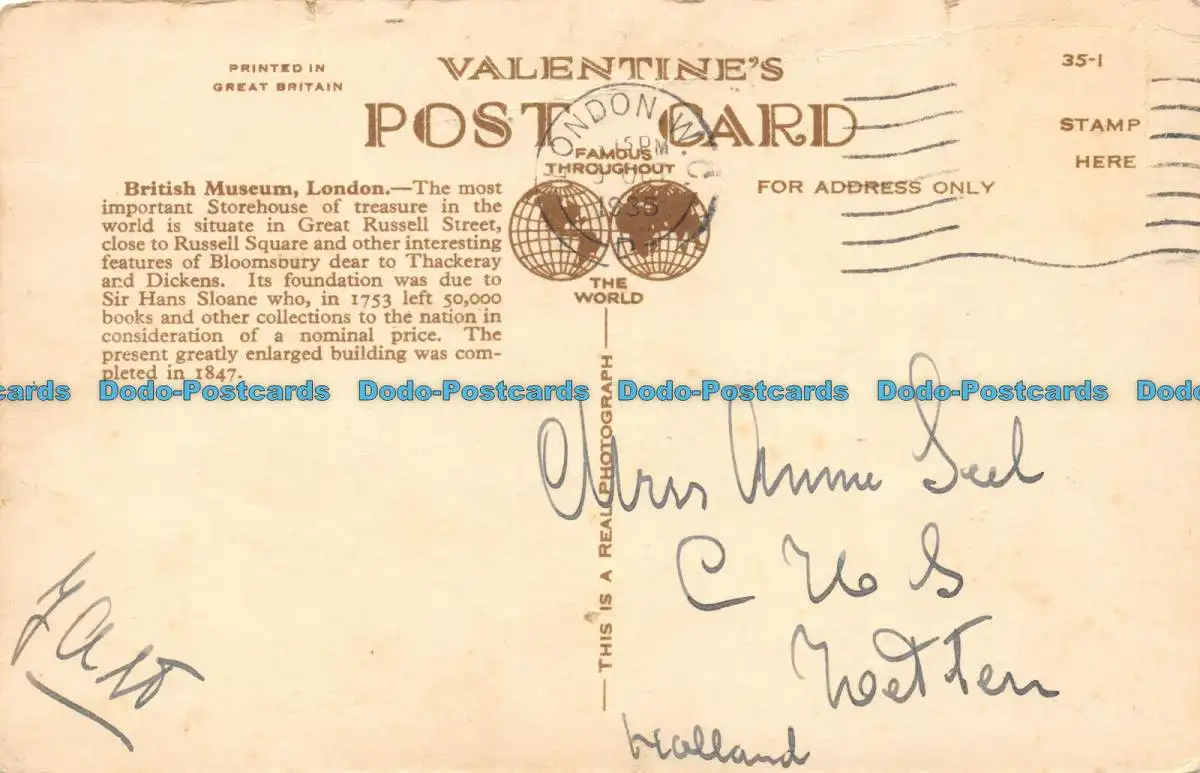 PRINTED IN
GREAT BRITAIN
VALENTINE'S
POST CARD
35-1
STAMP
HERE
LONDON. W.C.
15PM
1935
FAMOUS
THROUGHOUT
THE
WORLD
FOR ADDRESS ONLY
British Museum, London.—The most
important Storehouse of treasure in the
world is situate in Great Russell Street,
close to Russell Square and other interesting
features of Bloomsbury dear to Thackeray
and Dickens. Its foundation was due to
Sir Hans Sloane who, in 1753 left 50,000
books and other collections to the nation in
consideration of a nominal price. The
present greatly enlarged building was com-
pleted in 1847.
Dodo-Postcards Dodo-Postcards Dodo-Postcards Dodo-Postcards
THIS IS A REAL PHOTOGRAPH
Annie
C
Holland